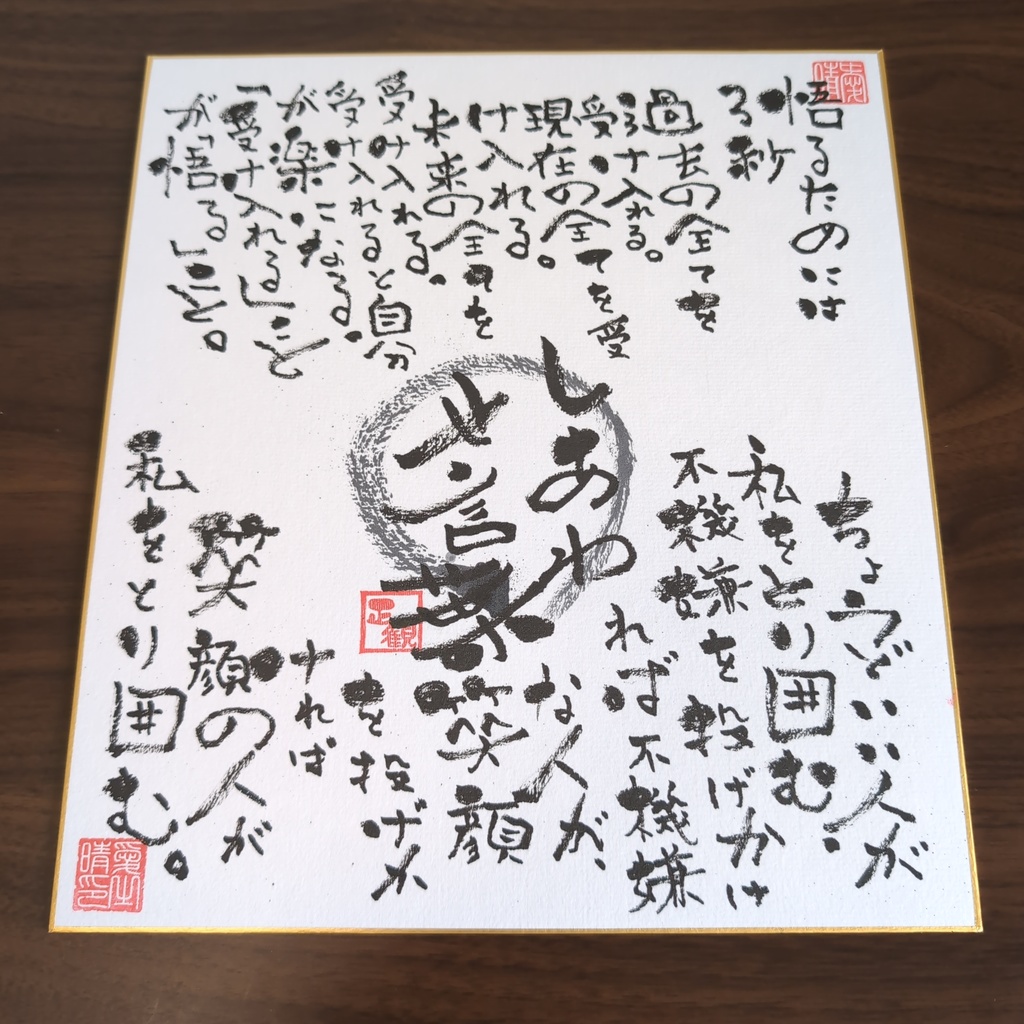 悟るためには
3秒
過去の全てを
受け入れる。
現在の全てを受
け入れる。
未来の全てを
受け入れる。
受け入れると自分
が楽になる。
「受け入れる」こと
が「悟る」こと。
しあわ
せン言葉
正観
ちょうどいい人が
私をとり囲む。
不機嫌を投げかけ
れば不機嫌
な人が、
笑顔
を投げか
ければ
笑顔の人が
私をとり囲む。